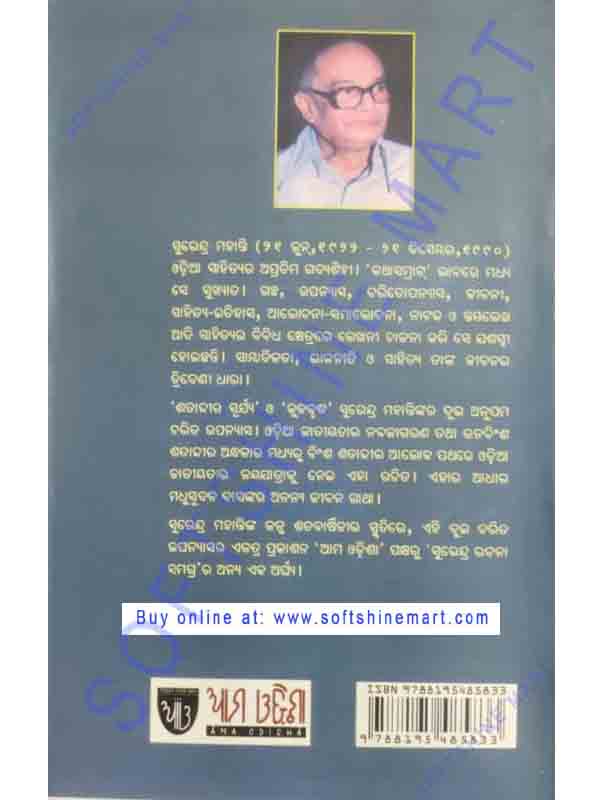 ସୁରେନ୍ଦ୍ର ମହାନ୍ତି (୨୧ ଜୁନ୍,୧୯୨୨ - ୨୧ ଡିସେମ୍ବର,୧୯୯୦)
ଓଡ଼ିଆ ସାହିତ୍ୟର ଅପ୍ରତିମ ଗଦ୍ୟଶିଳ୍ପୀ। 'କଥାସମ୍ରାଟ୍' ଭାବରେ ମଧ୍ୟ
ସେ ସୁଖ୍ୟାତ। ଗଳ୍ପ, ଉପନ୍ୟାସ, ଚରିତୋପନ୍ୟାସ, ଜୀବନୀ,
ସାହିତ୍ୟ-ଇତିହାସ, ଆଲୋଚନା-ସମାଲୋଚନା, ନାଟକ ଓ ସ୍ତମ୍ଭଲେଖା
ଆଦି ସାହିତ୍ୟର ବିବିଧ କ୍ଷେତ୍ରରେ ଲେଖନୀ ଚାଳନା କରି ସେ ଯଶସ୍ୱୀ
ହୋଇଛନ୍ତି। ସାମ୍ବାଦିକତା, ରାଜନୀତି ଓ ସାହିତ୍ୟ ତାଙ୍କ ଜୀବନର
ତ୍ରିବେଣୀ ଧାରା।
'ଶତାବ୍ଦୀର ସୂର୍ଯ୍ୟ' ଓ 'କୁଳବୃଦ୍ଧ' ସୁରେନ୍ଦ୍ର ମହାନ୍ତିଙ୍କର ଦୁଇ ଅନୁପମ
ଚରିତ ଉପନ୍ୟାସ। ଓଡ଼ିଆ ଜାତୀୟତାର ନବଜାଗରଣ ତଥା ଊନବିଂଶ
ଶତାବ୍ଦୀର ଅନ୍ଧକାର ମଧ୍ୟରୁ ବିଂଶ ଶତାବ୍ଦୀର ଆଲୋକ ପଥରେ ଓଡ଼ିଆ
ଜାତୀୟତାର ଜୟଯାତ୍ରାକୁ ନେଇ ଏହା ରଚିତ। ଏହାର ଆଧାର
ମଧୁସୂଦନ ଦାସଙ୍କର ଅନନ୍ୟ ଜୀବନ ଗାଥା।
ସୁରେନ୍ଦ୍ର ମହାନ୍ତିଙ୍କ ଜନ୍ମ ଶତବାର୍ଷିକୀର ସ୍ମୃତିରେ, ଏହି ଦୁଇ ଚରିତ
ଉପନ୍ୟାସର ଏକତ୍ର ପ୍ରକାଶନ 'ଆମ ଓଡ଼ିଶା' ପକ୍ଷରୁ 'ସୁରେନ୍ଦ୍ର ରଚନା
ସମଗ୍ର'ର ଅନ୍ୟ ଏକ ଅର୍ଘ୍ୟ।
Buy online at: www.softshinemart.com
ଆଓ
ଆମ ଓଡ଼ିଶା
AMA ODISHA
ISBN 9788195485833
9 788195 485833
SOFTSHINE MART